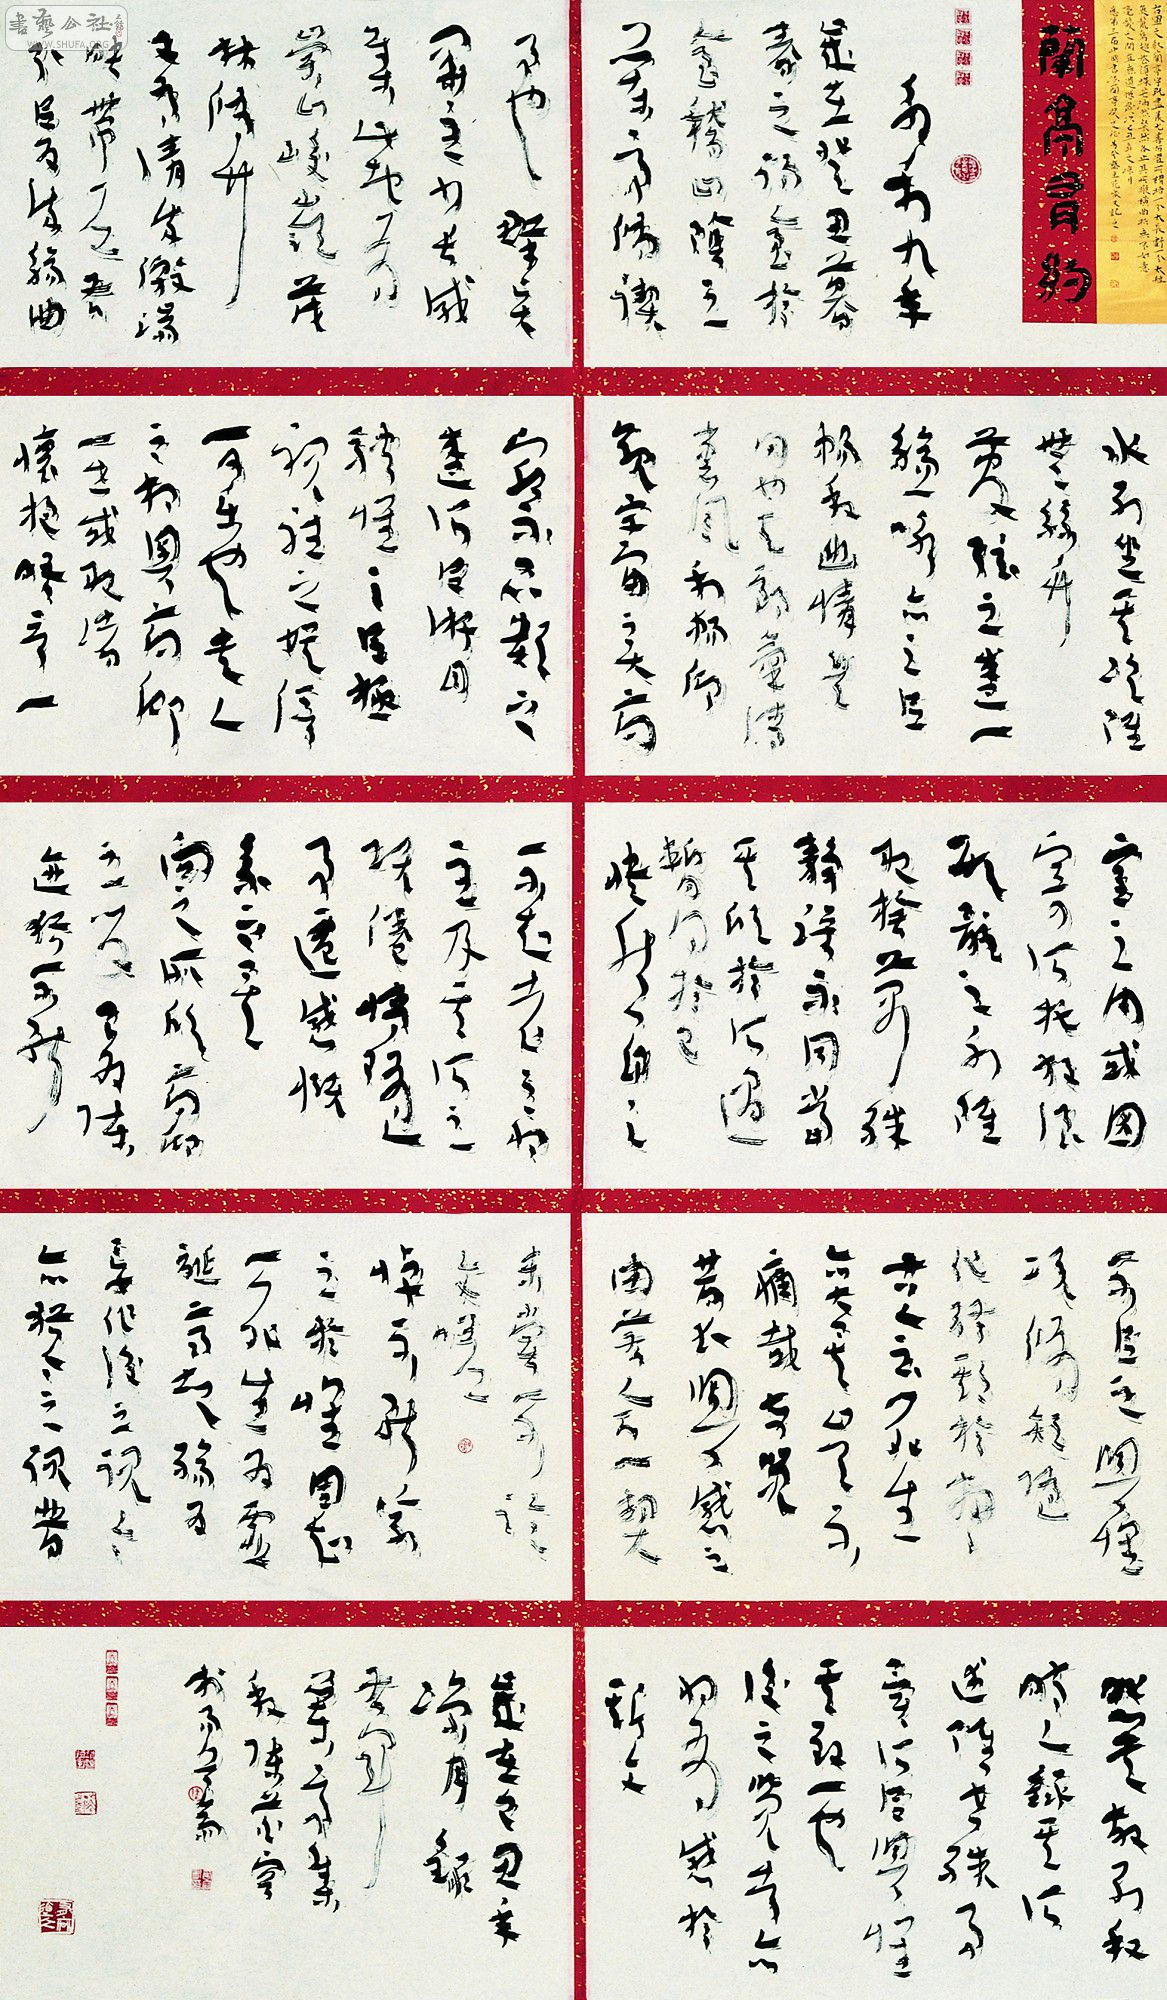 蘭亭
永和九年
歲在癸丑暮
春之初會於
會稽山陰之
蘭亭脩禊
事也群賢
畢至少長咸
集此地有
崇山峻嶺茂
林脩竹
又有清流激湍
映帶左右
引以為流觴曲
水列坐其次雖
無絲竹
管弦之盛一
觴一詠亦足以
暢敘幽情是
日也天朗氣清
惠風和暢仰
觀宇宙之大俯
察品類之
盛所以游目
騁懷足以極
視聽之娛信
可樂也夫人
之相與俯仰
一世或取諸
懷抱晤言一
室之內或因
寄所託放浪
形骸之外雖
取捨萬殊
靜躁不同當
其欣於所遇
暫得於己
快然自足
不知老之將
至及其所之
既倦情隨
事遷感慨
係之矣
向之所欣俯仰
之間已為陳
迹猶不能
不以之興懷
況脩短隨
化終期於盡
古人云死生
亦大矣豈不
痛哉每覽
昔人興感之
由若合一契
未嘗不臨
文嗟
悼不能喻
之於懷固知
一死生為虛
誕齊彭殤為
妄作後之視今
亦猶今之視昔
悲夫故列敘
時人錄其所
述雖世殊事
異所以興懷
其致一也
後之覽者亦
將有感於
斯文
歲在己丑年
月錄
蘭亭集
書藝公社
WWW.SHUFA.ORG